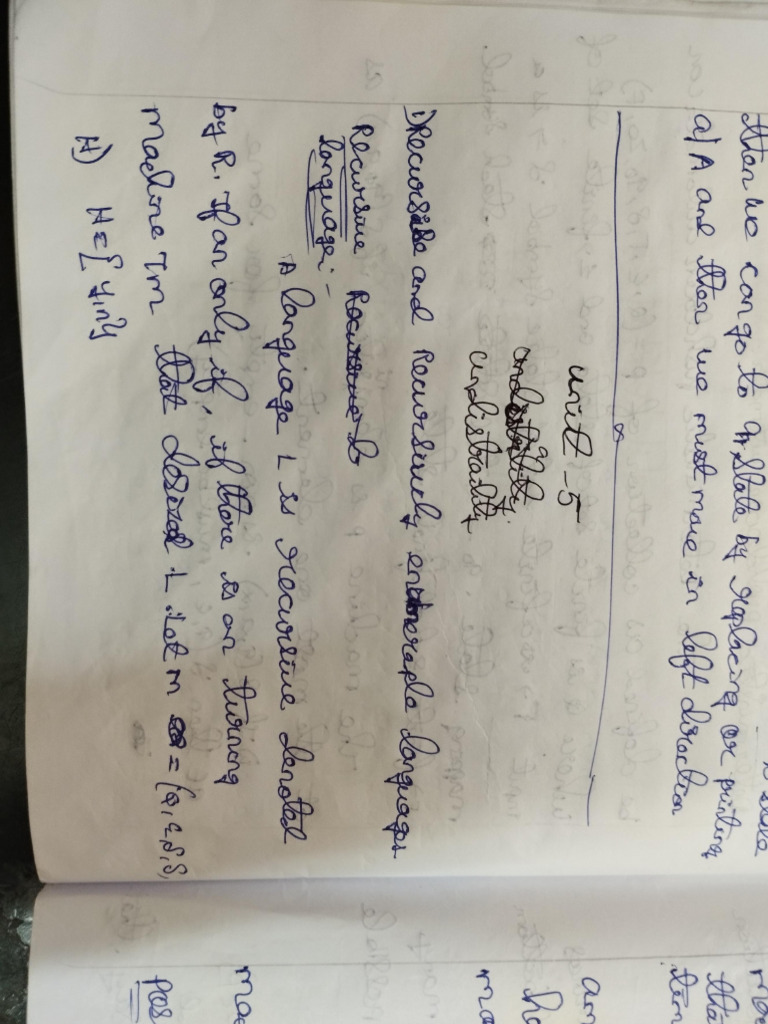 state
then we can go to q1 state by replacing or printing
a/A and then we must move in left direction
x
unit -5
undistbality
1) Recursive and Recursively enumerable languages
Recursive
language:-
A language L is recursive denoted
by R. if an only if, if there is an turning
machine Tm that desizal L. Let m = (Q, Σ, S, S,
H) H = { y, n }
am
ha
ma
mac
pos